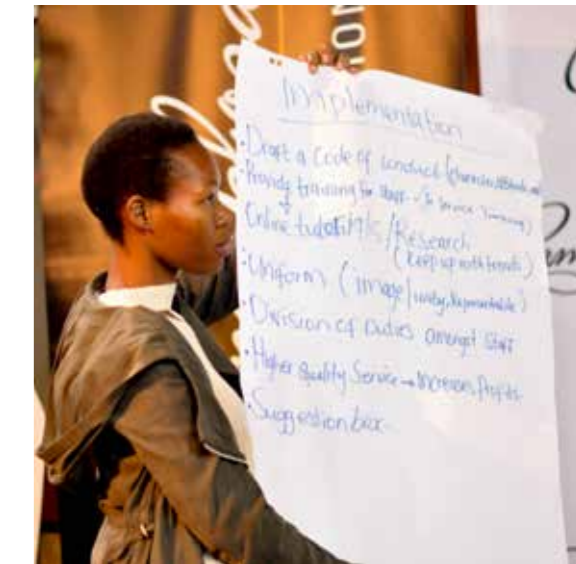 ION
Implementation
• Draft a Code of Conduct (
• Provide training for staff → In Service Training)
Online tutorials / Research
(keep up with trends)
• Uniform (image/unity, Representable)
• Division of Duties amongst Staff
• Higher Quality Service → Increases Profits
• Suggestion box